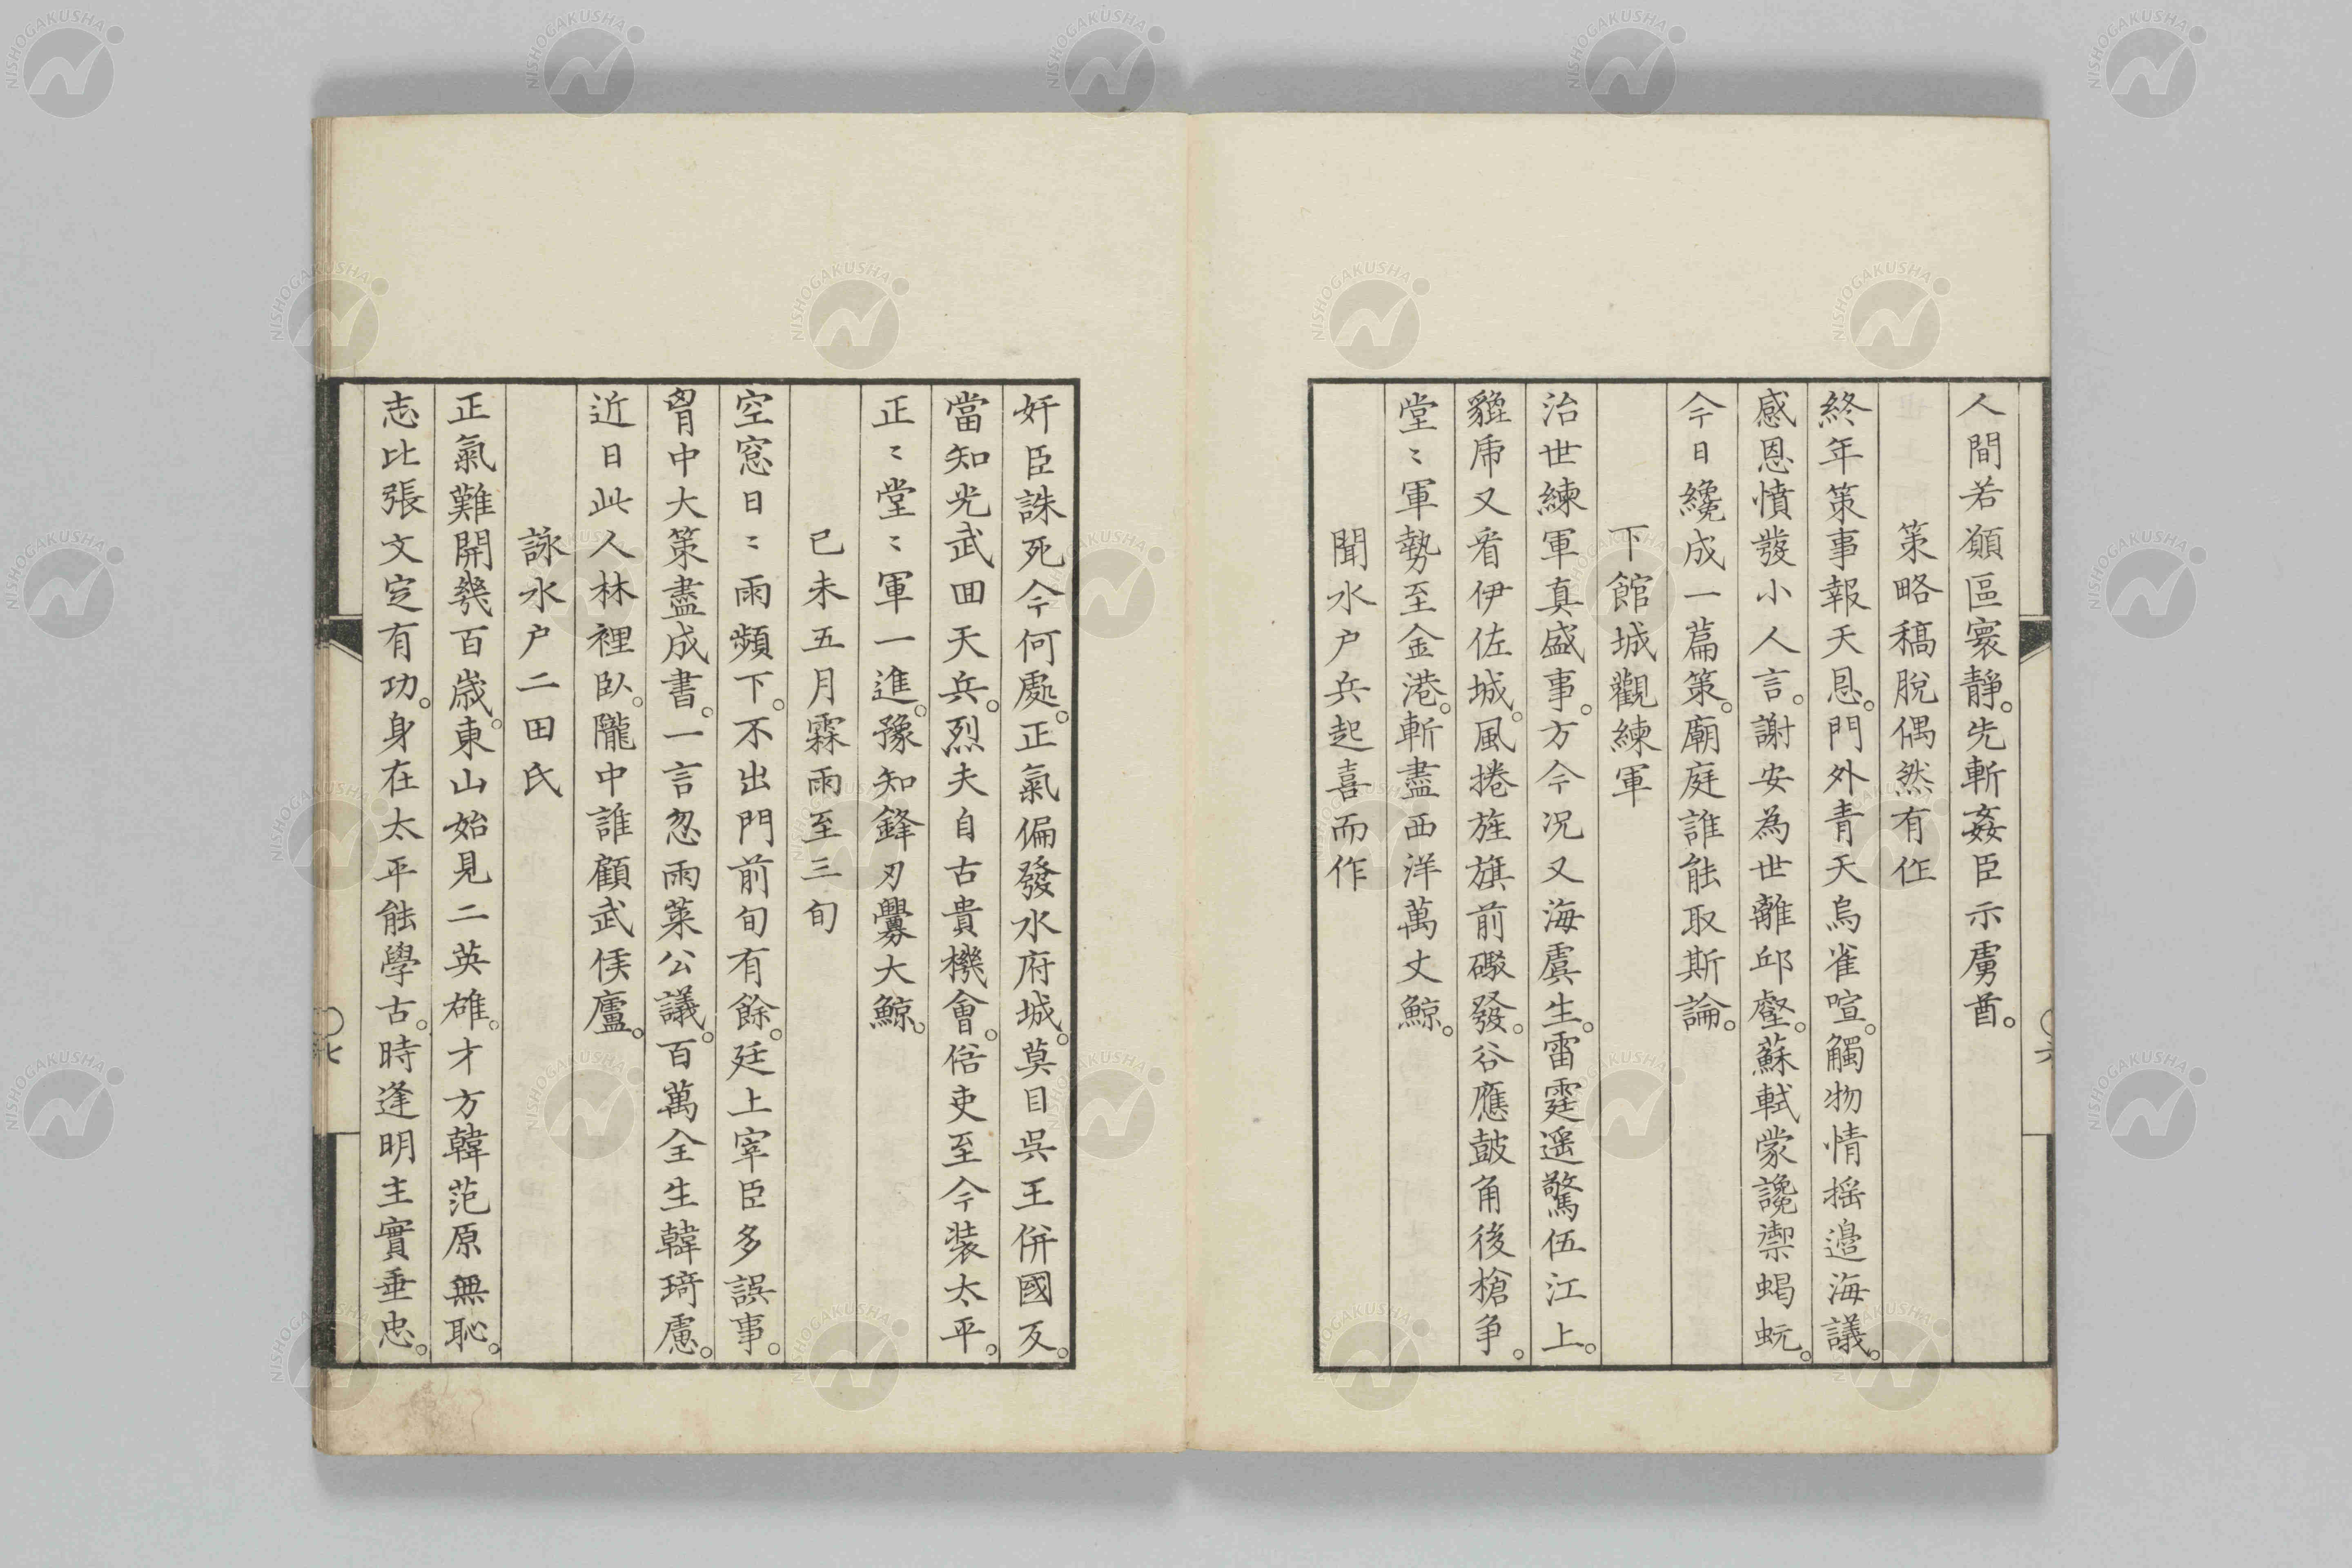 人間若願區寰靜。先斬姦臣示虜酋。
策略稿脫偶然有作
終年策事報天恩。門外青天烏雀喧。觸物情搖邉海議。
感恩憤發小人言。謝安為世離邱壑。蘇軾蒙讒禦蝎蚖。
今日纔成一篇策。廟庭誰能取斯論。
下館城觀練軍
治世練軍真盛事。方今況又海虞生。雷霆遥驚伍江上。
貔乕又看伊佐城。風捲旌旗前礟發。谷應鼓角後槍爭。
堂〻軍勢至金港。斬盡西洋萬丈鯨。
聞水户兵起喜而作
奸臣誅死今何處。正氣偏發水府城。莫目吳王併國反。
當知光武囬天兵。烈夫自古貴機會。俗吏至今装太平。
正〻堂〻軍一進。豫知鋒刃釁大鯨。
己未五月霖雨至三旬
空窓日〻雨頻下。不出門前旬有餘。廷上宰臣多誤事。
胷中大策盡成書。一言忽雨萊公議。百萬全生韓琦慮。
近日此人林裡臥。隴中誰顧武侯廬。
詠水户二田氏
正氣難開幾百歲。東山始見二英雄。才方韓范原無恥。
志比張文定有功。身在太平能學古。時逢明主實垂忠。
〇七
NISHOGAKUSHA